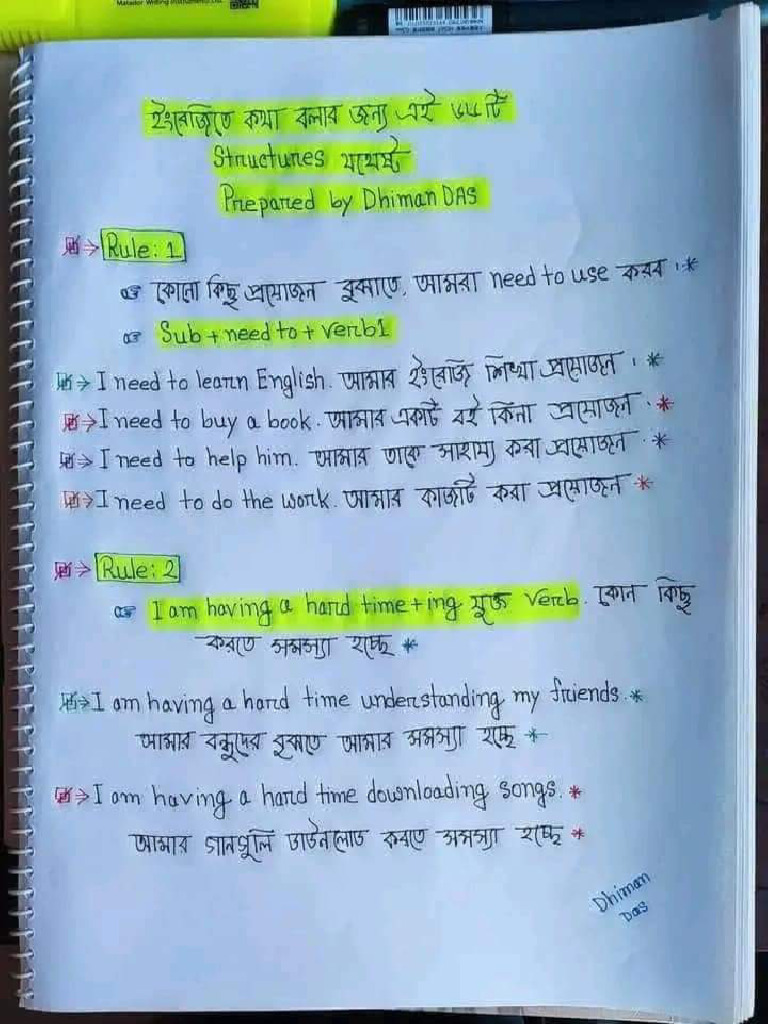 Matador Writing Instruments Ltd.
ইংরেজিতে কথা বলার জন্য এই ৬৬টি
Structures যথেষ্ট
Prepared by Dhiman DAS
Rule: 1
কোনো কিছু প্রয়োজন বুঝাতে, আমরা need to use করব।*
Sub + need to + verb1
I need to learn English. আমার ইংরেজি শিখা প্রয়োজন। *
I need to buy a book. আমার একটি বই কিনা প্রয়োজন. *
I need to help him. আমার তাকে সাহায্য করা প্রয়োজন. *
I need to do the work. আমার কাজটি করা প্রয়োজন *
Rule: 2
I am having a hard time + ing যুক্ত verb. কোন কিছু
করতে সমস্যা হচ্ছে *
I am having a hard time understanding my friends. *
আমার বন্ধুদের বুঝতে আমার সমস্যা হচ্ছে *
I am having a hard time downloading songs. *
আমার গানগুলি ডাউনলোড করতে সমস্যা হচ্ছে *
Dhiman
Das